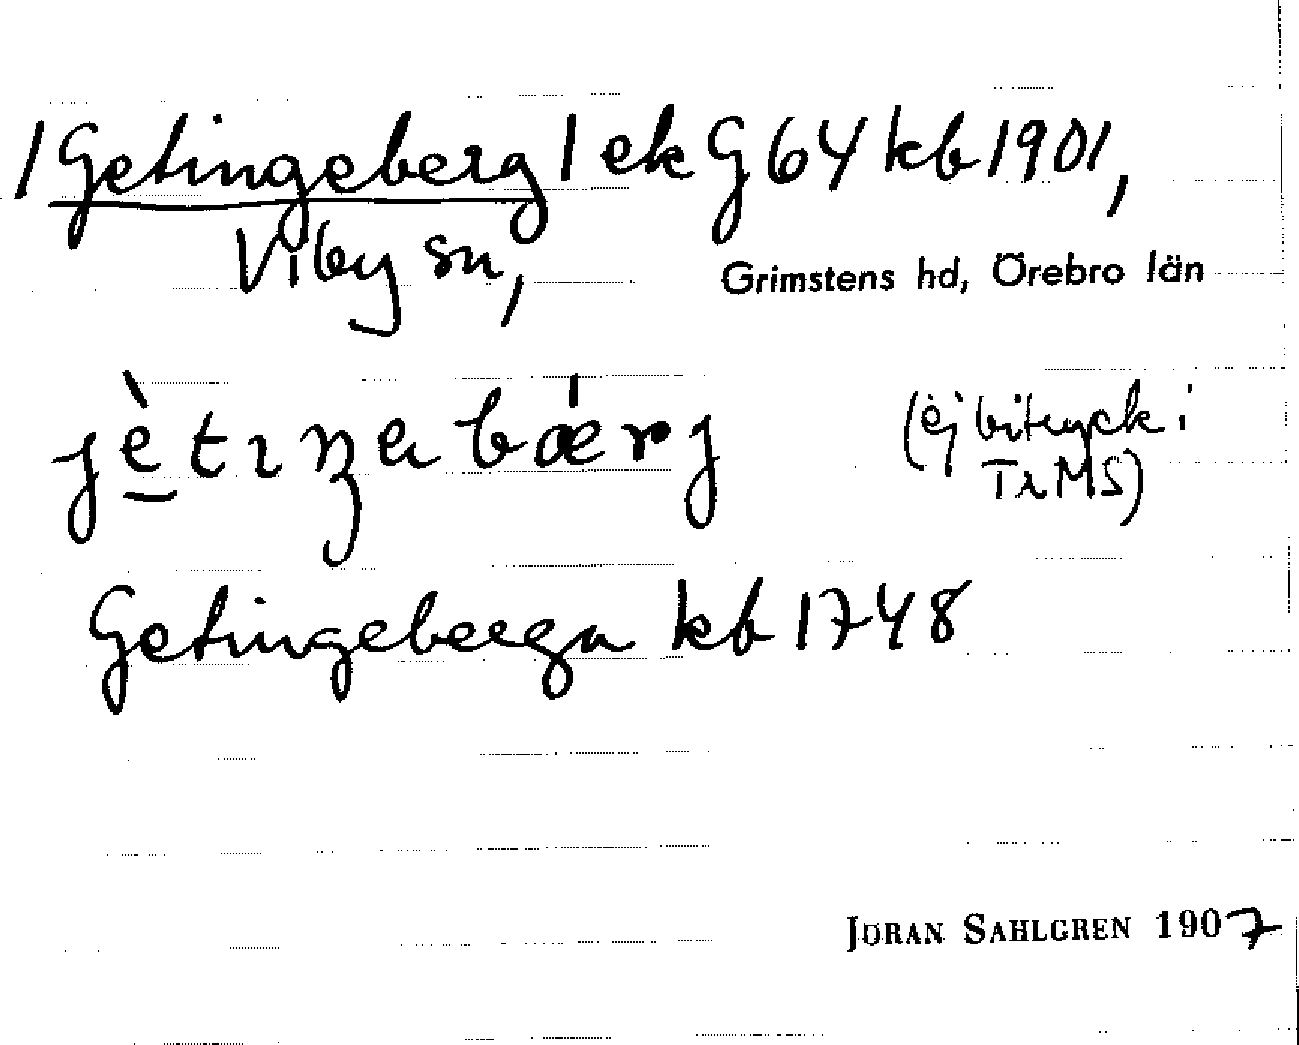 /Getingeberg/ ek G 64 kb 1901,
Viby sn, Grimstens hd, Örebro län
jè̱tıŋabǽrj (ej bitryck i
TrMS)
Getingeberga kb 1748
JÖRAN SAHLGREN 1907